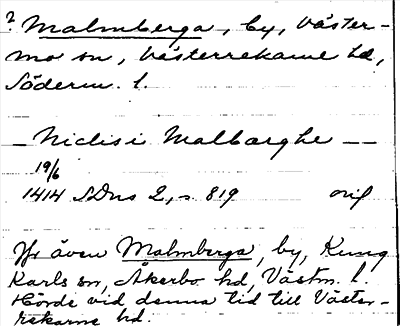 ? Malmberga, by, Väster-
mo sn, Västerrekarne hd,
Söderm. l.
— Niclis i Malbærghe —
19/6
1414 SDns 2, s. 819 orig
Jfr även Malmberga, by, Kung
Karls sn, Åkerbo hd, Västm. l.
Hörde vid denna tid till Väster-
rekarne hd.